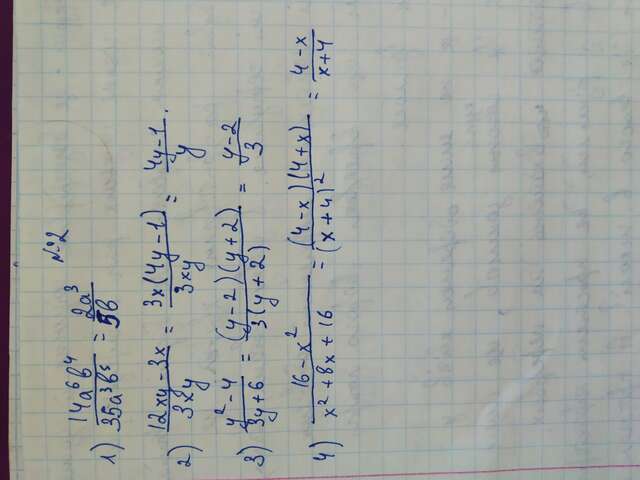 №2
1) 14a⁶b⁴/35a³b⁵ = 2a³/5b
2) 12xy-3x/3xy = 3x(4y-1)/3xy = 4y-1/y.
3) y²-4/3y+6 = (y-2)(y+2)/3(y+2) = y-2/3
4) 16-x²/x²+8x+16 = (4-x)(4+x)/(x+4)² = 4-x/x+4